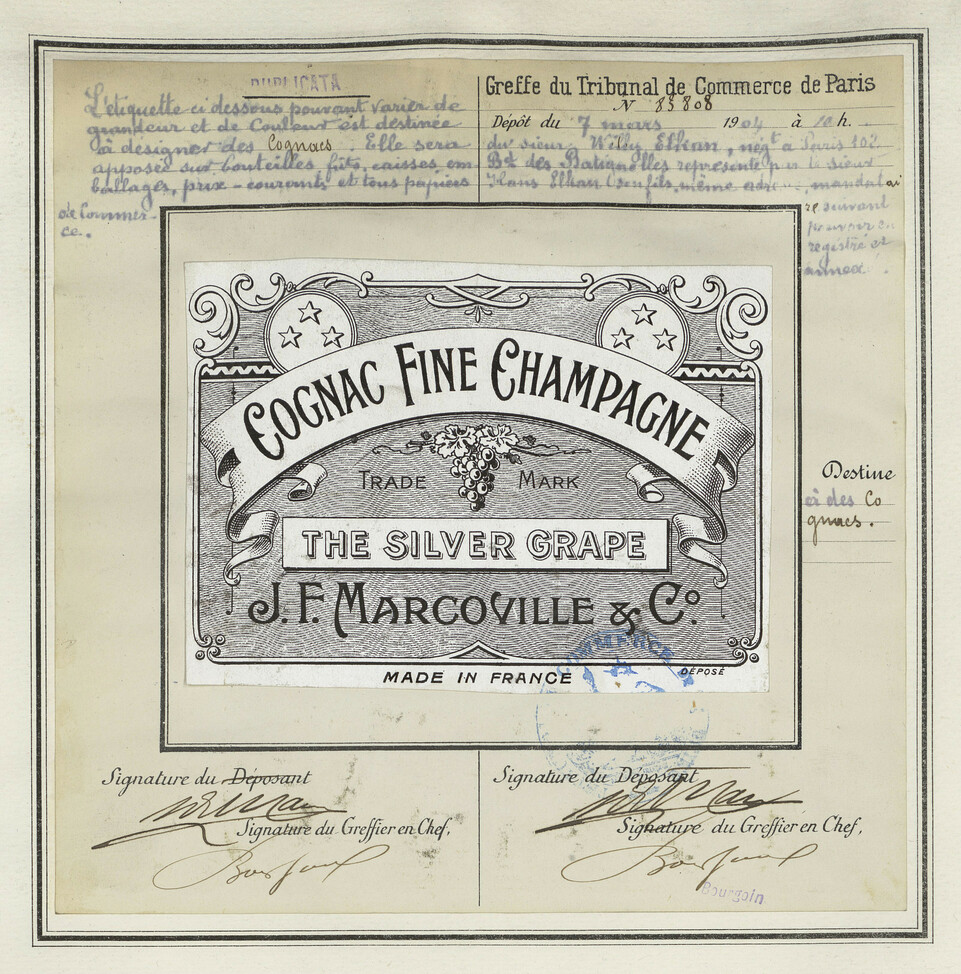 DUPLICATA
L'étiquette ci dessous pouvant varier de
grandeur et de Couleur est destinée
à désigner des Cognacs. Elle sera
apposée sur bouteilles, fûts, caisses em
ballages, prix-courants et tous papiers
de Commer
ce.
Greffe du Tribunal de Commerce de Paris
N° 83808
Dépôt du 7 mars 1904 à 10 h.
du sieur Willy Elkan, négt à Paris 102
Bd des Batignolles représenté par le sieur
Hans Elkan son fils, même adresse, mandatai
re suivant
pouvoir en
registré et
annexé.
COGNAC FINE CHAMPAGNE
TRADE MARK
THE SILVER GRAPE
J. F. MARCOVILLE & Co.
MADE IN FRANCE
DÉPOSÉ
COMMERCE
Destiné
à des Co
gnacs.
Signature du Déposant
Signature du Greffier en Chef,
Signature du Déposant
Signature du Greffier en Chef,
Bourgoin